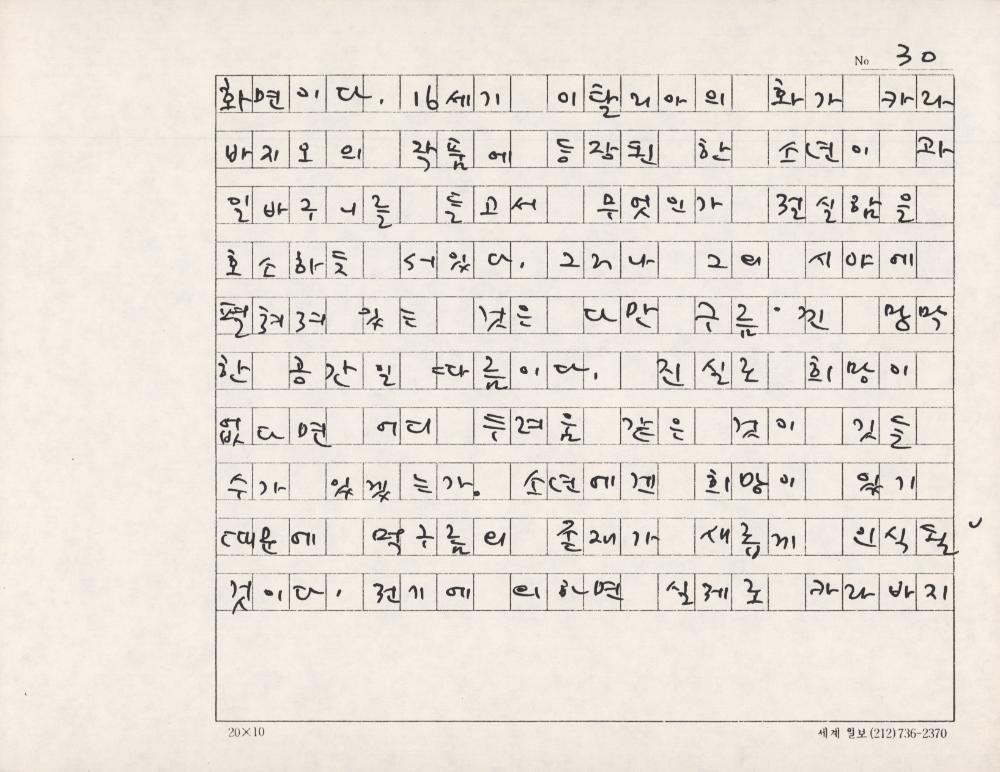 No 30
화면이다. 16세기 이탈리아의 화가 카라
바지오의 작품에 등장된 한 소년이 과
일바구니를 들고서 무엇인가 절실함을
호소하듯 서있다. 그러나 그의 시야에
펼쳐져 있는 것은 다만 구름 낀 망막
한 공간일 따름이다. 진실로 희망이
없다면 어디 두려움 같은 것이 깃들
수가 있겠는가. 소년에겐 희망이 있기
때문에 먹구름의 존재가 새롭게 인식될
것이다. 전기에 의하면 실제로 카라바지
20×10
세계 월보 (212) 736-2370